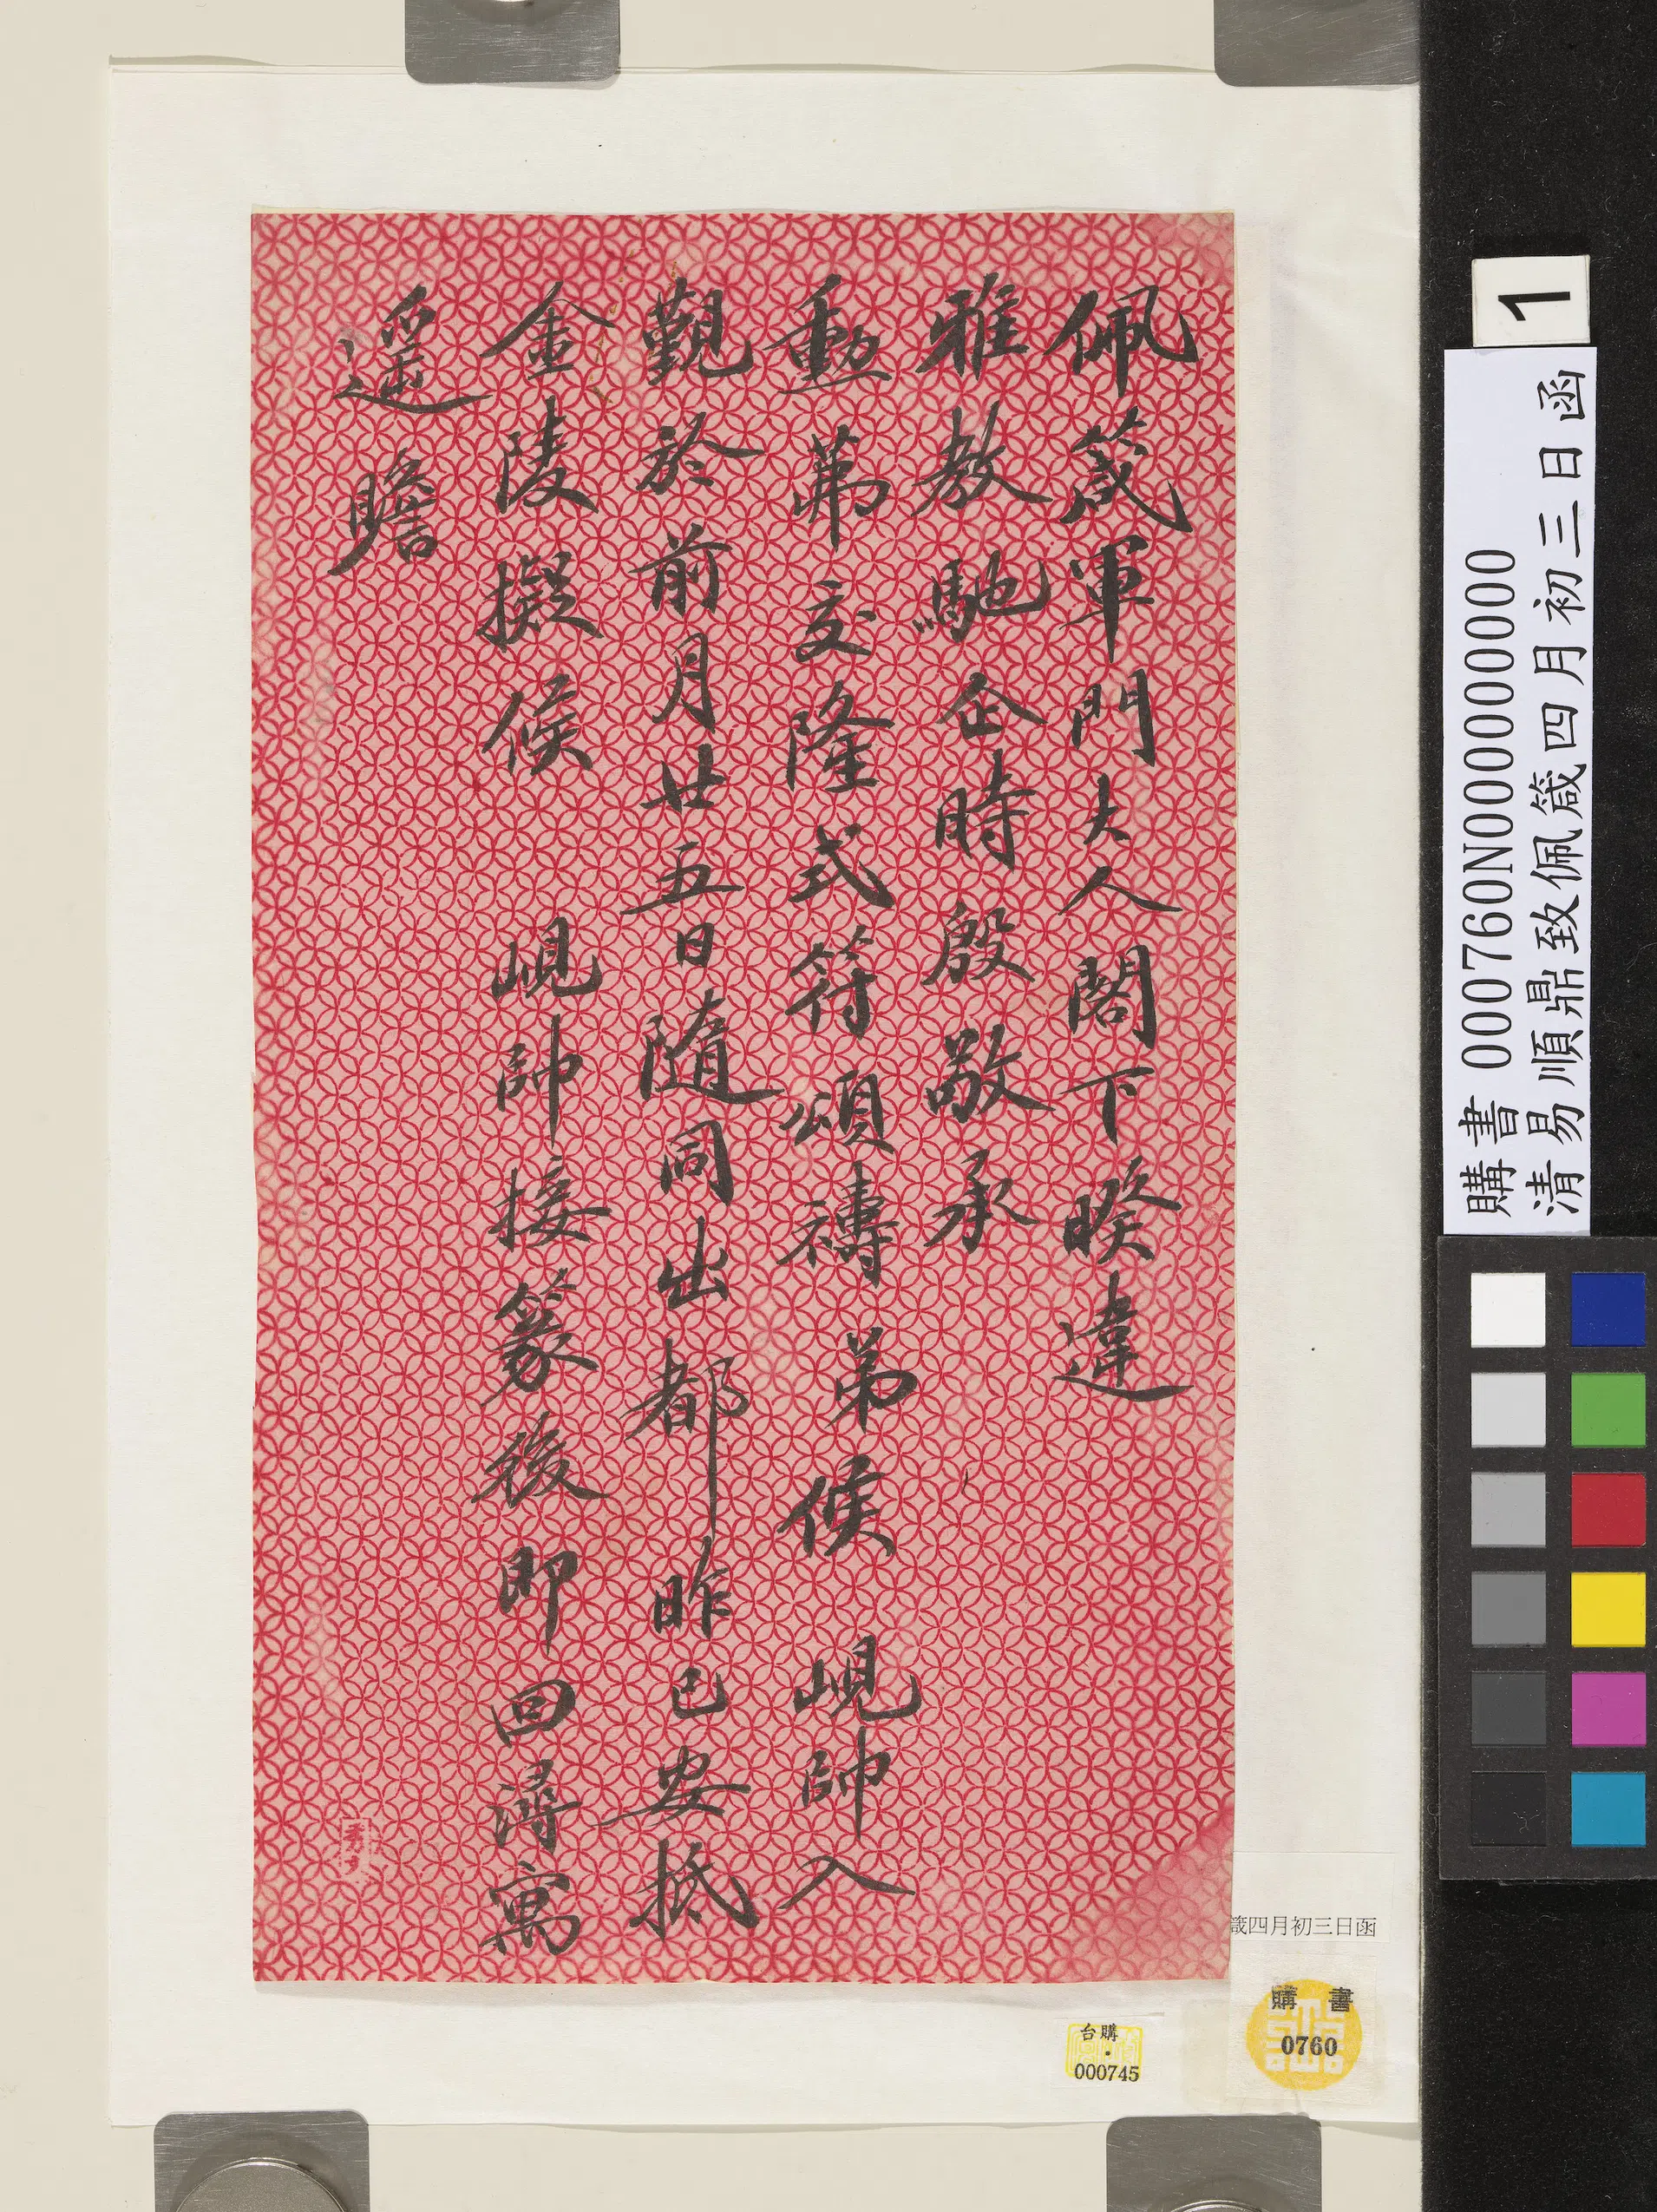 佩箴軍門大人閣下睽違
雅教馳企時殷敬承
勳茀交隆式符頌禱弟候峴帥入
覲於前月廿五日隨同出都昨已安抵
金陵擬候峴帥接篆後即回潯寓
遥瞻
箴四月初三日函
購書
0760
台購
000745
1
購書 000760N000000000
清易順鼎致佩箴四月初三日函